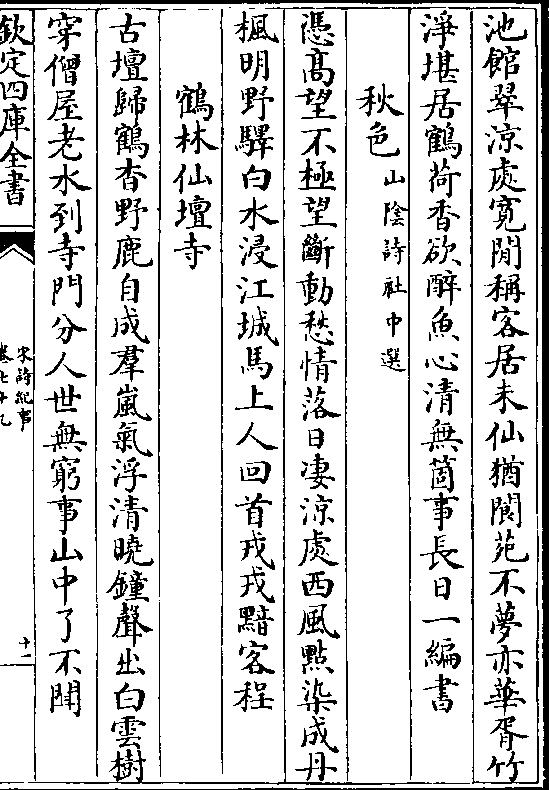 池館翠涼處寛閒稱客居未仙猶閬苑不夢亦華胥竹
淨堪居鶴荷香欲醉魚心清無箇事長日一編書
秋色山陰詩社中選
憑髙望不極望斷動愁情落日凄涼處西風點染成丹
楓明野驛白水浸江城馬上人回首戎戎黯客程
鶴林仙壇寺
古壇歸鶴杳野鹿自成羣嵐氣浮清曉鐘聲出白雲樹
穿僧屋老水到寺門分人世無窮事山中了不聞
欽定四庫全書
宋詩紀事
卷七十九
十二